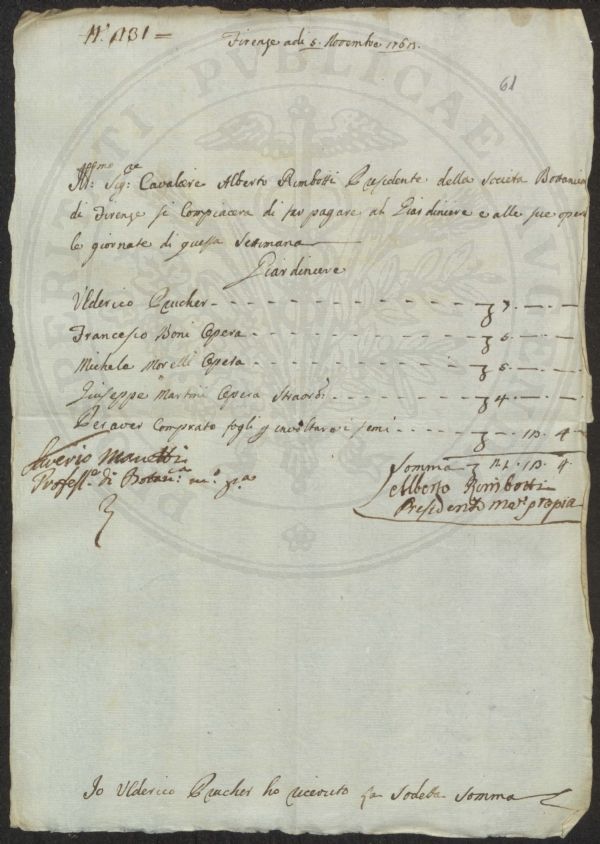 N.° 1131 =
Firenze adi 5. Novembre 1763.
61
Ill:mo Sig:re Cavaliere Alberto Rimbotti Presidente della Società Botanica
di Firenze si Compiacerà di far pagare al Giardiniere e alle sue opere
le giornate di questa Settimana
Giardiniere
Ulderico Prucher
7.
Francesco Boni Opera
6.
Michele Morelli Opera
5.
Giuseppe Martini Opera Straord:
4.
Per aver Comprato fogli p involtare i semi
4
Saverio Manetti
Profess:e di Botan:a m:o p:a
Somma
4.
Alberto Rimbotti
Presidente m:o propia
Io Ulderico Prucher ho ricevuto la sodetta somma
PERISTI PUBLICAE